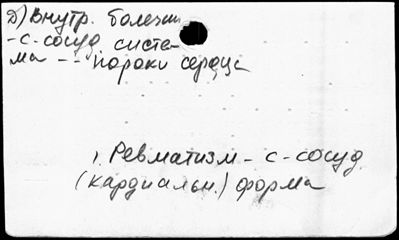 2) Внутр. болезни
-с-сосуд систе-
ма -- пороки сердца
1, Ревматизм - с-сосуд
(кардиальн.) форма